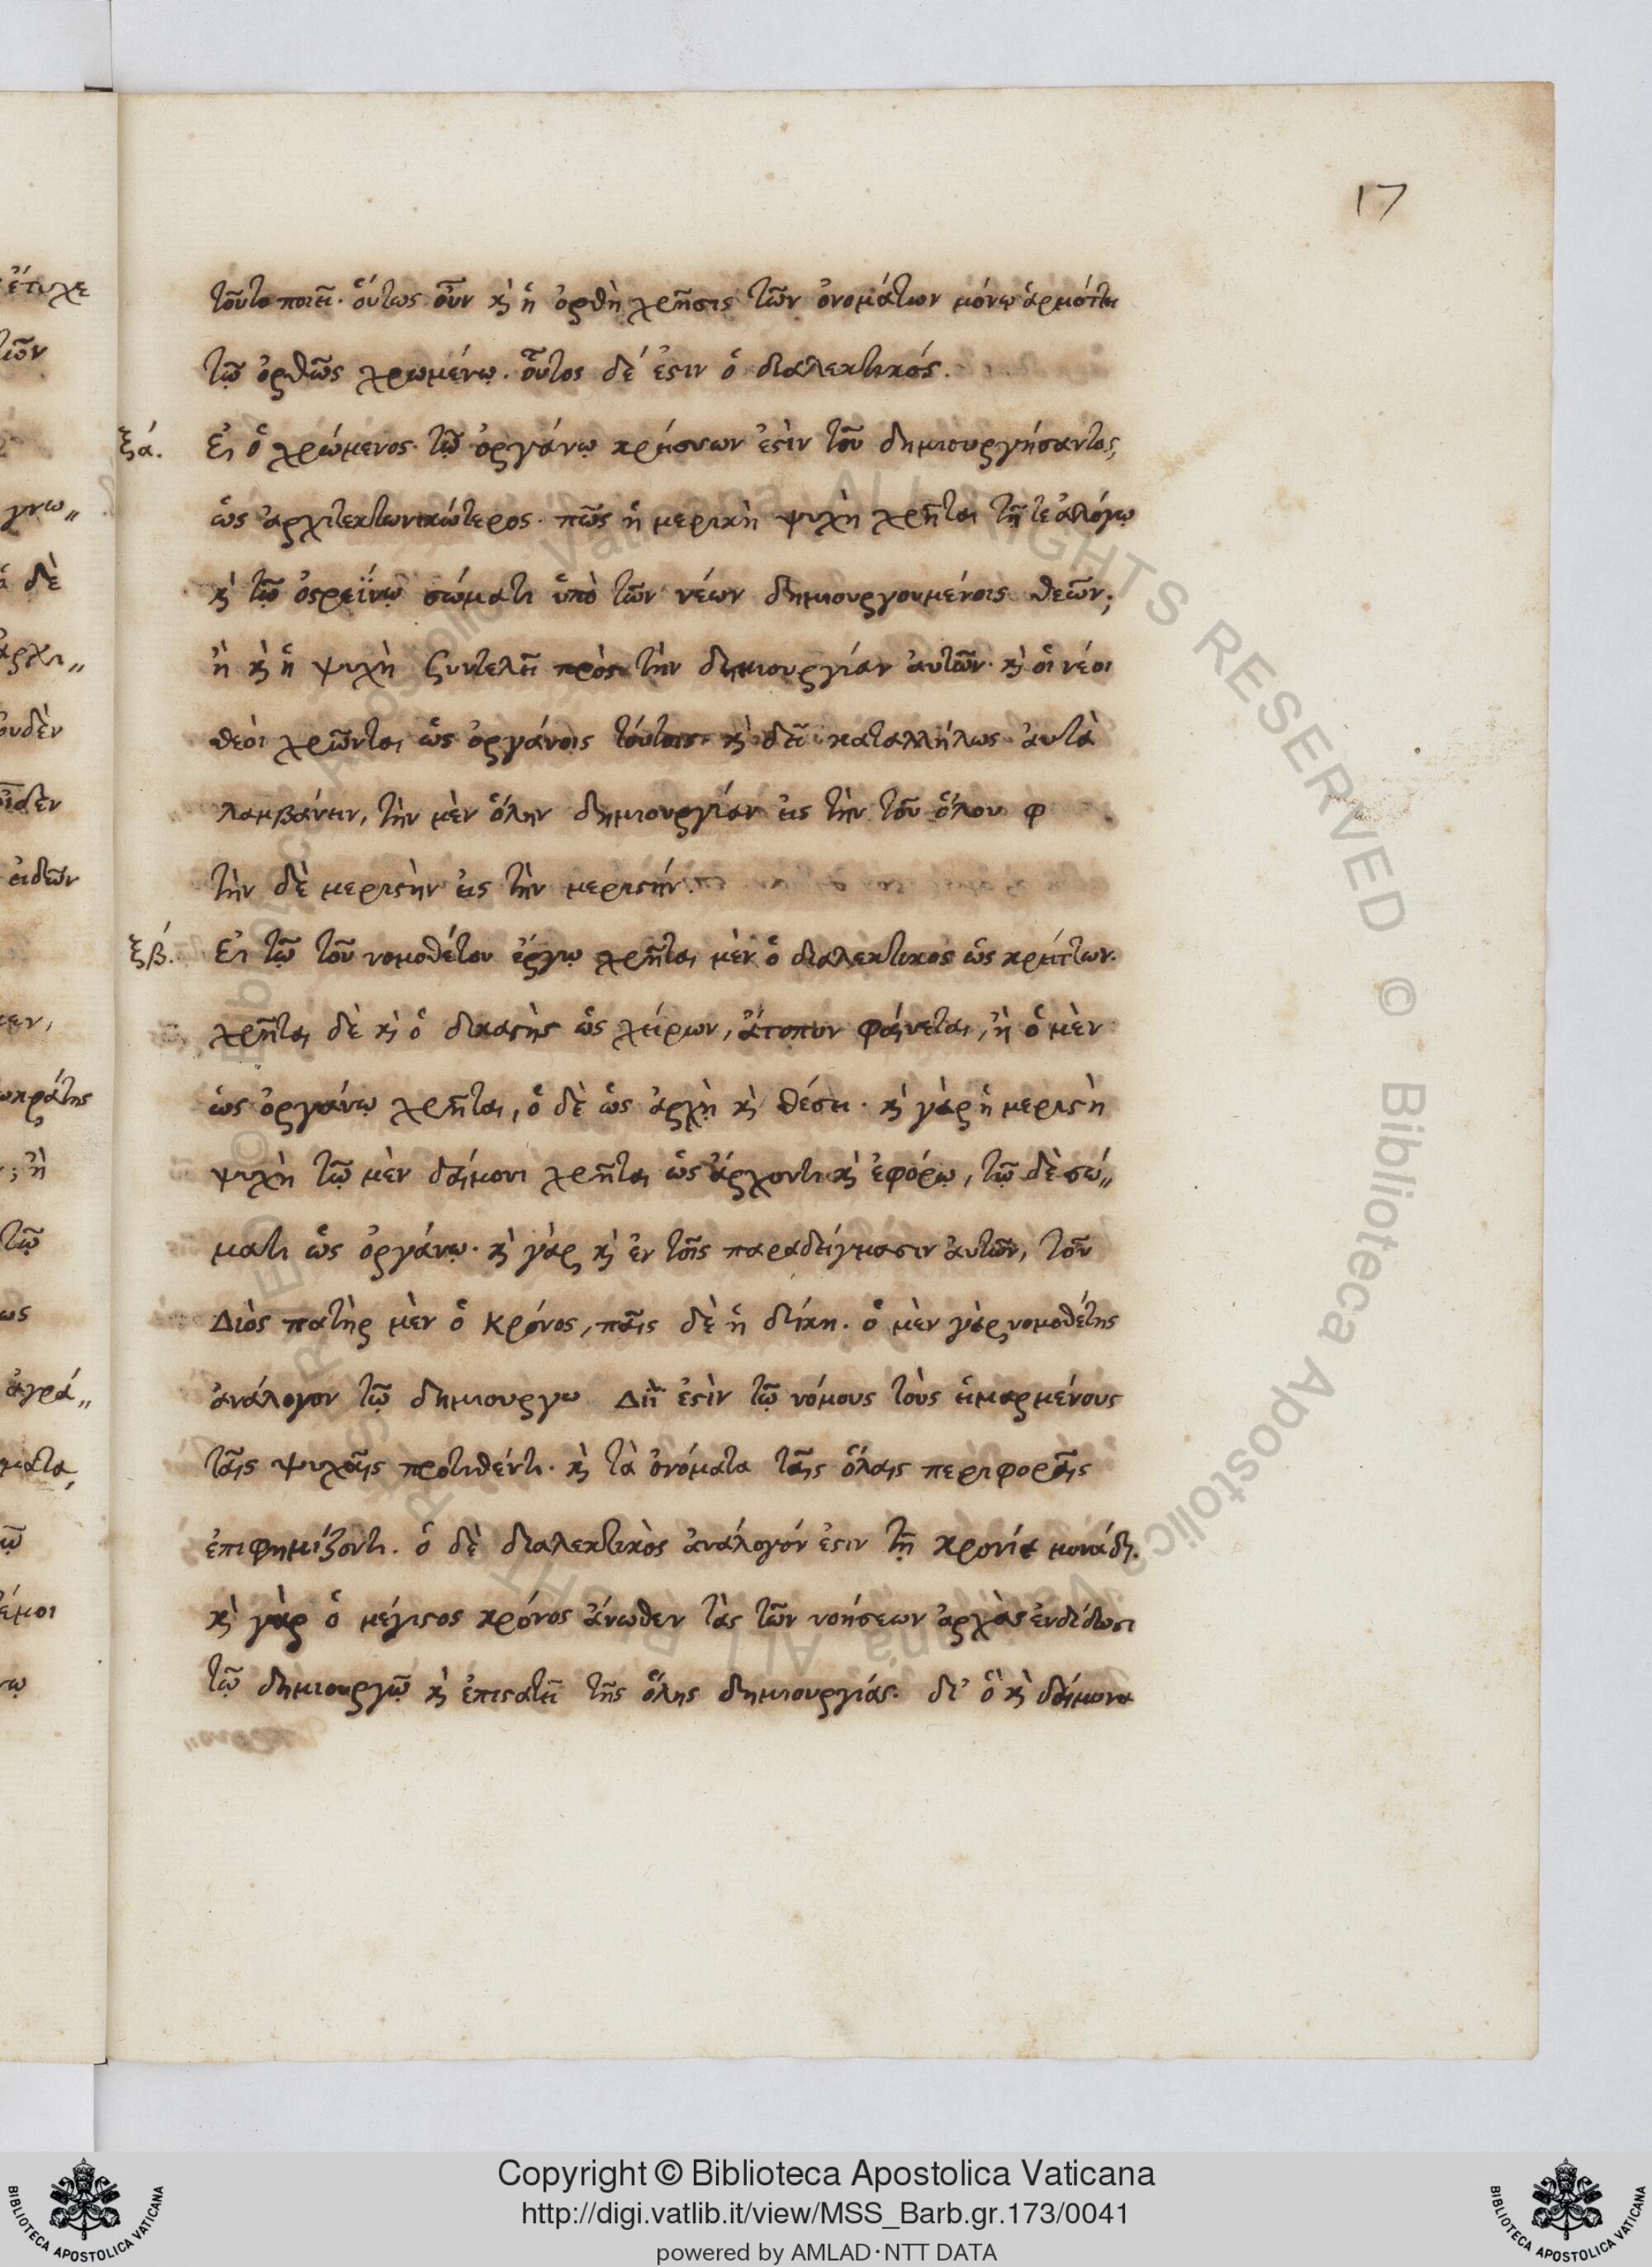 17
τοῦτο ποιεῖ. οὕτως οὖν κὴ ἡ ὀρθὴ χρῆσις τῶν ὀνομάτων μόνῳ ἁρμόττει
τῷ ὀρθῶς χρωμένῳ. οὗτος δέ ἐστιν ὁ διαλεκτικός.
ξά. Εἰ ὁ χρώμενος τῷ ὀργάνῳ κρείσσων ἐστὶν τοῦ δημιουργήσαντος,
ὡς ἀρχιτεκτωνικώτερος. πῶς ἡ μερικὴ ψυχὴ χρῆται τῇ τε ἀλόγῳ
κὴ τῷ ὀστρεΐνῳ σώματι ὑπὸ τῶν νέων δημιουργουμένοις θεῶν;
ἢ κὴ ἡ ψυχὴ συντελεῖ πρὸς τὴν δημιουργίαν αὐτῶν. κὴ οἱ νέοι
θεοὶ χρῶνται ὡς ὀργάνοις τούτοις κὴ δεῖ καταλλήλως αὐτὰ
λαμβάνειν, τὴν μὲν ὅλην δημιουργίαν εἰς τὴν τοῦ ὅλου φ
τὴν δὲ μεριστὴν εἰς τὴν μεριστήν.
ξβ. Εἰ τῷ τοῦ νομοθέτου ἔργῳ χρῆται μὲν ὁ διαλεκτικὸς ὡς κρείττων.
χρῆται δὲ κὴ ὁ δικαστὴς ὡς χείρων, ἄτοπον φαίνεται, ἢ ὁ μὲν
ὡς ὀργάνῳ χρῆται, ὁ δὲ ὡς ἀρχῇ κὴ θέσει. κὴ γὰρ ἡ μεριστὴ
ψυχὴ τῷ μὲν δαίμονι χρῆται ὡς ἄρχοντι κὴ ἐφόρῳ, τῷ δὲ σώ〃
ματι ὡς ὀργάνῳ. κὴ γὰρ κὴ ἐν τοῖς παραδείγμασιν αὐτῶν, τοῦ
Διὸς πατὴρ μὲν ὁ Κρόνος, παῖς δὲ ἡ δίκη. ὁ μὲν γὰρ νομοθέτης
ἀνάλογον τῷ δημιουργῳ Διῒ ἐστὶν τῷ νόμους τοὺς εἱμαρμένους
ταῖς ψυχαῖς προτιθέντι. κὴ τὰ ὀνόματα ταῖς ὅλαις περιφοραῖς
ἐπιφημίζοντι. ὁ δὲ διαλεκτικὸς ἀνάλογόν ἐστιν τῇ κρονίᾳ μονάδι.
κὴ γὰρ ὁ μέγιστος κρόνος ἄνωθεν τὰς τῶν νοήσεων ἀρχὰς ἐνδίδωσι
τῷ δημιουργῷ κὴ ἐπιστατεῖ τῆς ὅλης δημιουργίας. δι' ὃ κὴ δαίμονα
Copyright © Biblioteca Apostolica Vaticana
http://digi.vatlib.it/view/MSS_Barb.gr.173/0041
powered by AMLAD·NTT DATA